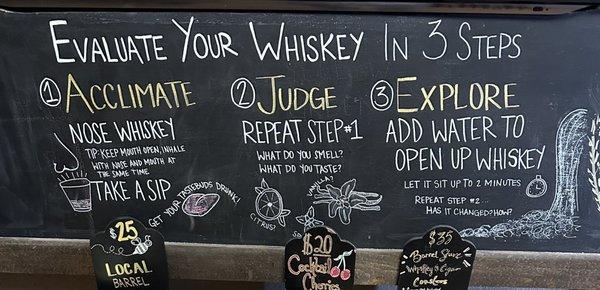 EVALUATE YOUR WHISKEY IN 3 STEPS
1 ACCLIMATE
NOSE WHISKEY
TIP: KEEP MOUTH OPEN, INHALE
WITH NOSE AND MOUTH AT
THE SAME TIME
TAKE A SIP
GET YOUR TASTEBUDS DRUNK!
2 JUDGE
REPEAT STEP #1
WHAT DO YOU SMELL?
WHAT DO YOU TASTE?
CITRUS?
VANILLA?
3 EXPLORE
ADD WATER TO
OPEN UP WHISKEY
LET IT SIT UP TO 2 MINUTES
REPEAT STEP #2...
HAS IT CHANGED? HOW?
$25
LOCAL
BARREL
$20
Cocktail
Cherries
$35
Barrel Stave
Whiskey & Cigar
Coasters